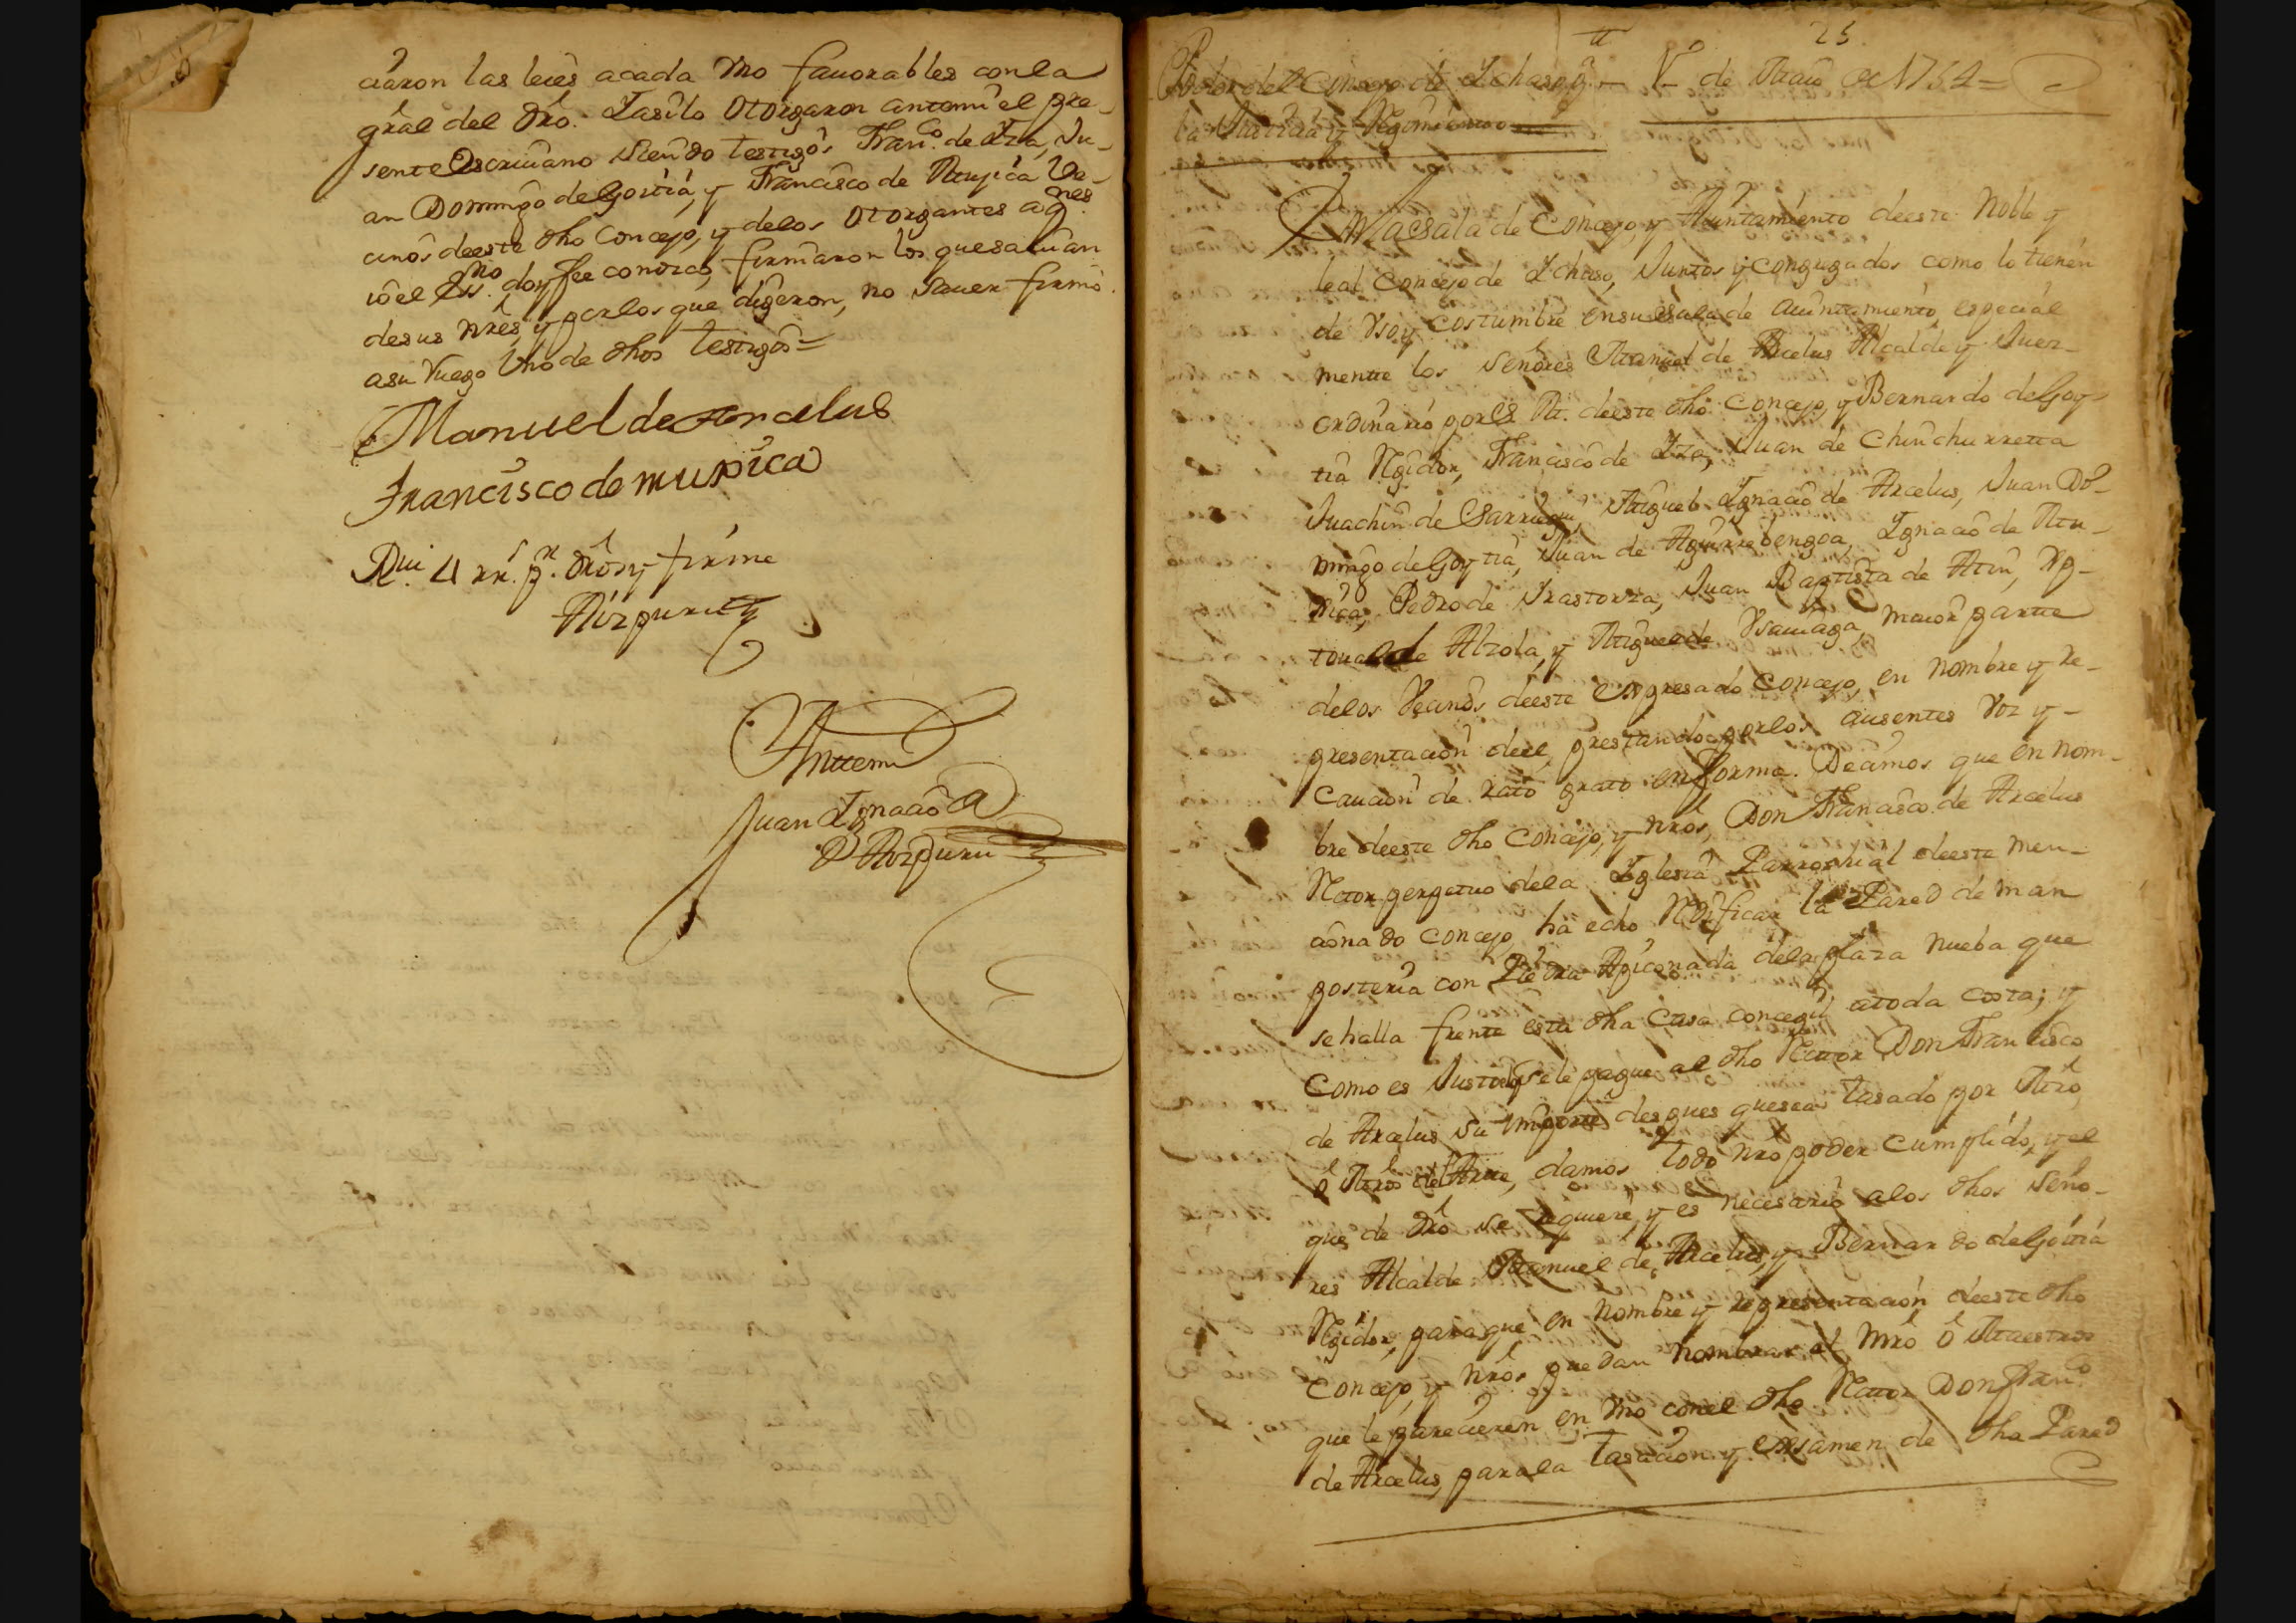 ciaron las leies acada Vno fauorables conla
gral del dro. Iasilo Otorgaron antemi el pre-
sente Escriuano siendo testigos Franco. de Iza, Ju-
an Domingo de Goitia, y Francisco de Muxica Ve-
cinos deeste dho Concejo, y delos Otorgantes aqnes.
io el Ssno. doy fee conozco, firmaron los que sauian
desus nres, y por los que digeron, no sauer firmo
asu ruego Vno de dhos testigos =
Manuel de Arcelus
Francisco de muxica
firme
Aizpuru
Anttemi
Juan Ignacio
Aizpuru
25
Poder del Concejo de Ichaso a V de Maio de 1754 =
la Justicia y Regimiento
En la Sala de Concejo, y Aiuntamiento deeste Noble y
leal Concejo de Ichaso, Juntos y congregados como lo tienen
de Vso y costumbre ensu sala de aiuntamiento, especial
mentte los señores Manuel de Arcelus Alcalde y Juez
ordinario por S. M. deeste dho Concejo, y Bernardo de Goy-
tia Regidor, Francisco de Iza, Juan de Chinchurretta
Juachin de Sarriegui, Miguel Ignacio de Arcelus, Juan Do-
mingo de Goytia, Juan de Aguirrebengoa, Ignacio de Mu-
xica, Pedro de Irastorza, Juan Baptista de
de Alzola, y Miguel de Vsauiaga, maior partte
delos Vecinos deeste expresado Concejo, en nombre y re-
presentacion deel, prestando por los ausentes Voz y
caucion de rato grato en forma. Decimos que en nom-
bre deeste dho Concejo, y nros, Don Francisco de Arcelus
Rector perpetuo dela Iglesia Parrochial deeste men-
cionado Concejo, ha echo Redificar la Pared de man
posteria con Piedra Apiconada dela plaza nueba que
se halla frente esta dha Casa concegil atoda costa; y
Como es Justo se le pague al dho Rector Don Francisco
de Arcelus su importe despues que sea tasado por Mro
ô Mros del Arte, damos todo nro poder cumplido, y el
que de dro se requiere, y es necesario alos dhos Seño-
res Alcalde Manuel de Arcelus, y Bernardo de Goitia
Regidor, paraque en nombre y representacion deeste dho
Concejo, y nros puedan nombrar al Mro ô Maestros
que le parecieren en Vno conel dho Rector Don Franco
de Arcelus, para la Tasacion y exsamen de dha Pared